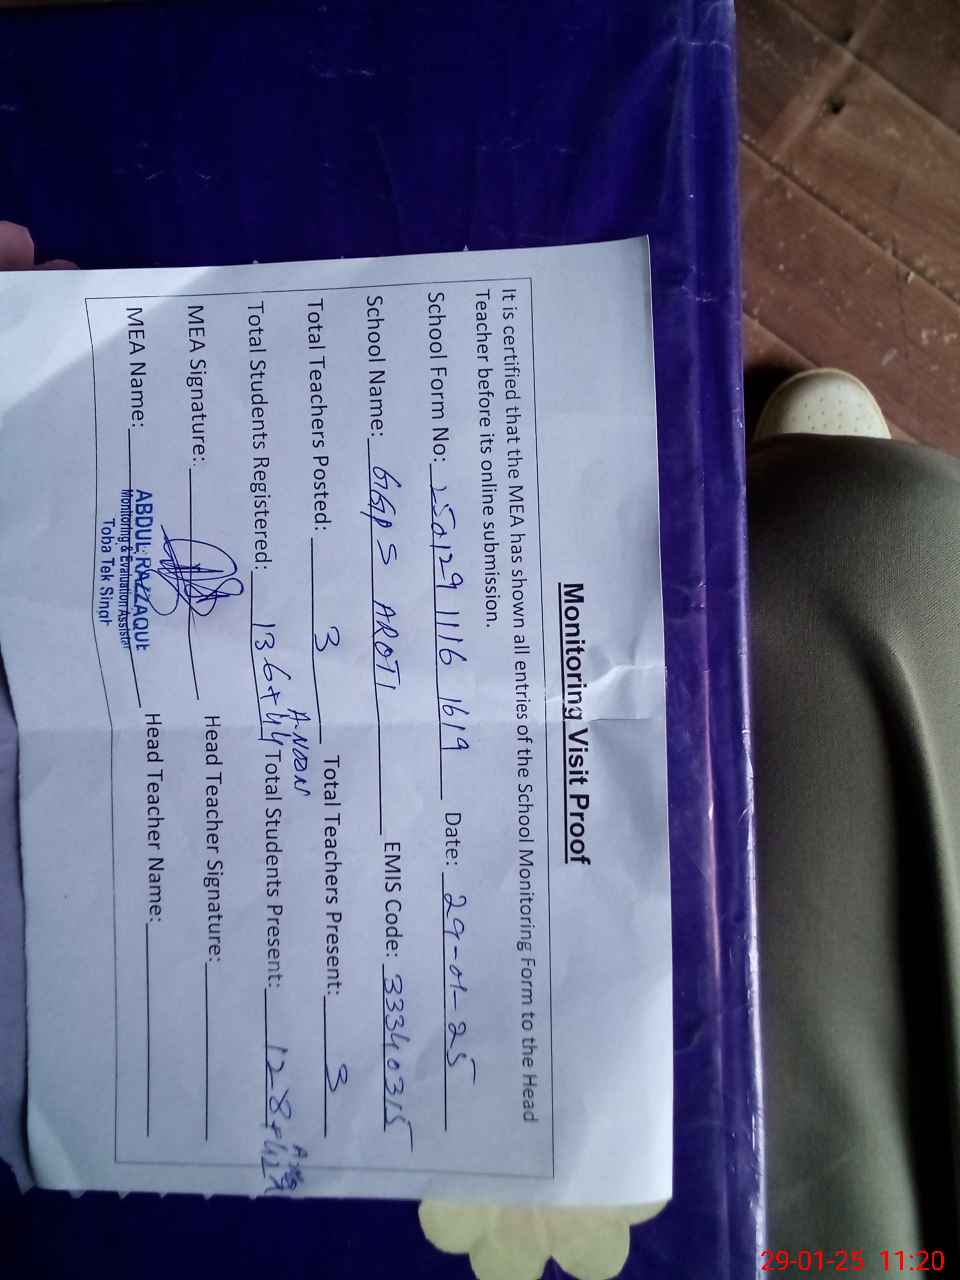 Monitoring Visit Proof
It is certified that the MEA has shown all entries of the School Monitoring Form to the Head
Teacher before its online submission.
School Form No: 250129 1116 1619 Date: 29-01-25
School Name: GGPS AROTI EMIS Code: 33340315
Total Teachers Posted: 3 Total Teachers Present: 3
A-NOON
Total Students Registered: 136+44 Total Students Present: 128+42
MEA Signature: Head Teacher Signature:
MEA Name: ABDUL RAZZAQUE Head Teacher Name:
Monitoring & Evaluation Assistant
Toba Tek Singh
29-01-25 11:20